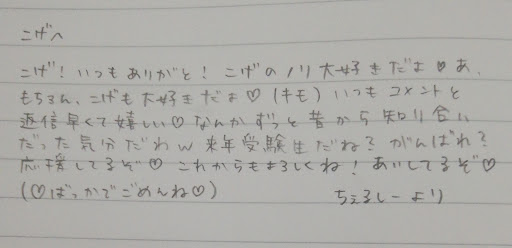 こげへ
こげ!いつもありがと!こげのノリ大好きだよ♡あ、
もちろん、こげも大好きだよ♡(キモ)いつもコメントと
返信早くて嬉しい♡なんかずっと昔から知り合い
だった気分だわw来年受験生だね?がんばれ?
応援してるぞ♡これからもよろしくね!あいしてるぞ♡
(♡ばっかでごめんね♡)
ちぇるしーより